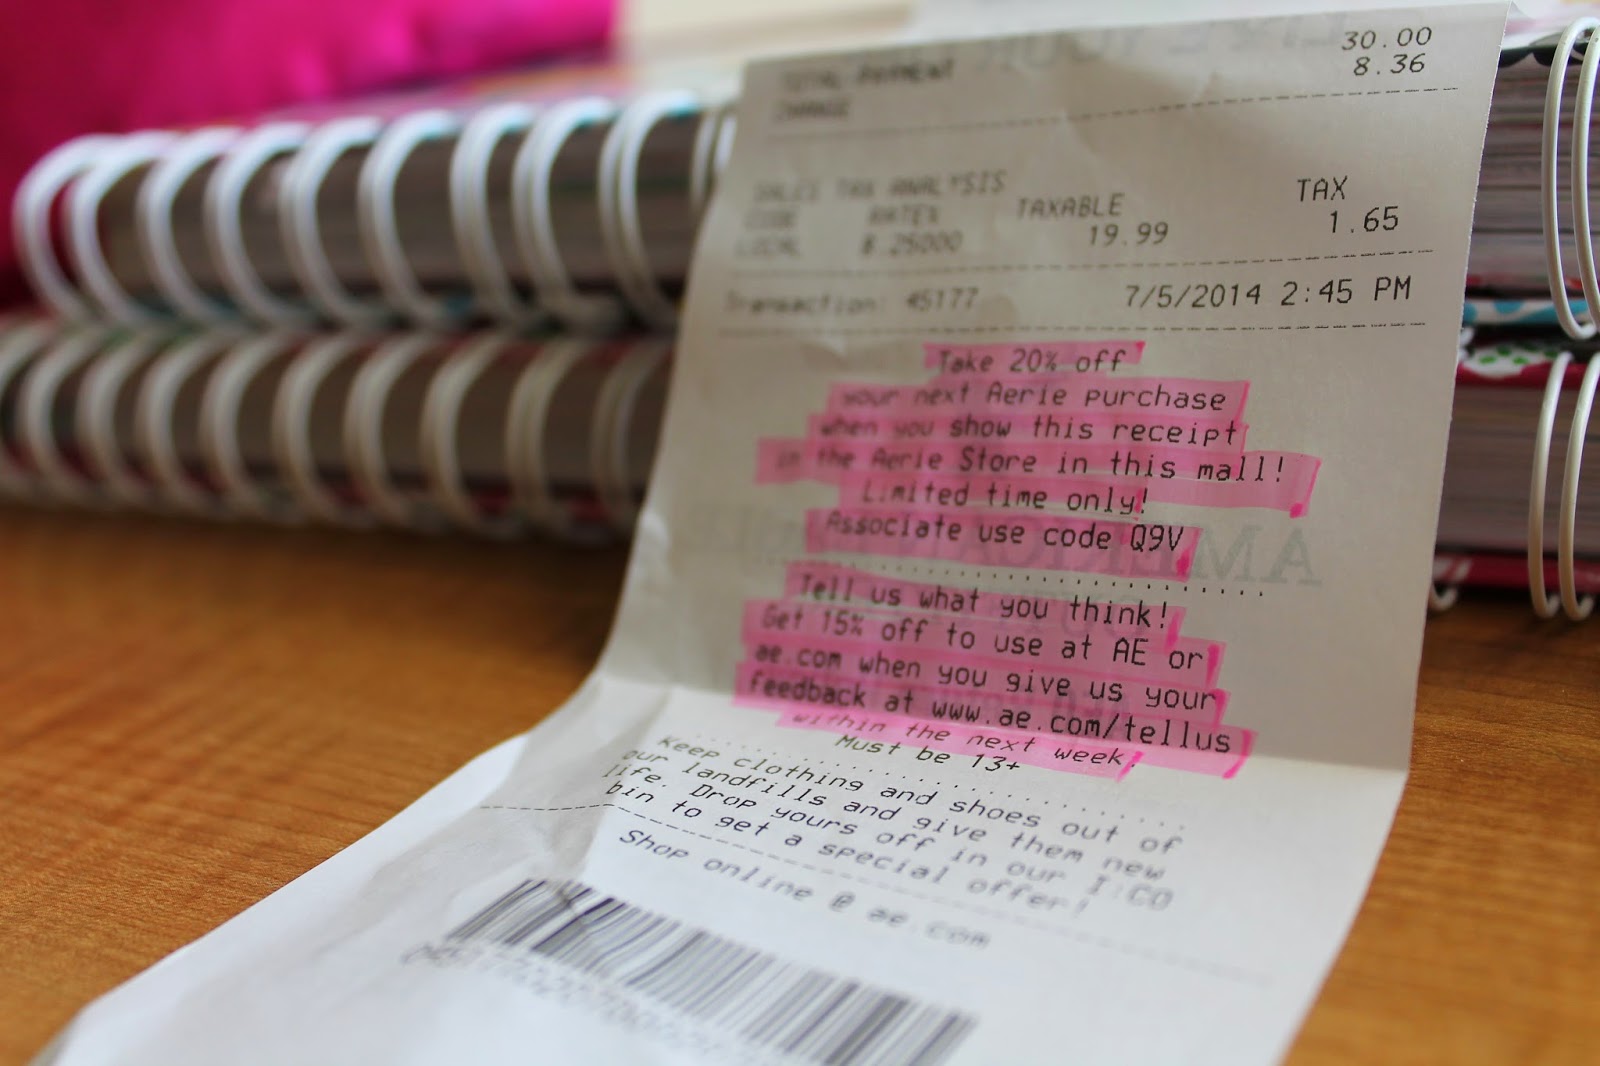 TOTAL PAYMENT 30.00
CHANGE 8.36
SALES TAX ANALYSIS
CODE RATE% TAXABLE TAX
LOCAL 8.25000 19.99 1.65
Transaction: 45177 7/5/2014 2:45 PM
Take 20% off
your next Aerie purchase
when you show this receipt
in the Aerie Store in this mall!
Limited time only!
Associate use code Q9V
Tell us what you think!
Get 15% off to use at AE or
ae.com when you give us your
feedback at www.ae.com/tellus
within the next week.
Must be 13+
Keep clothing and shoes out of
our landfills and give them new
life. Drop yours off in our I:CO
bin to get a special offer!
Shop online @ ae.com